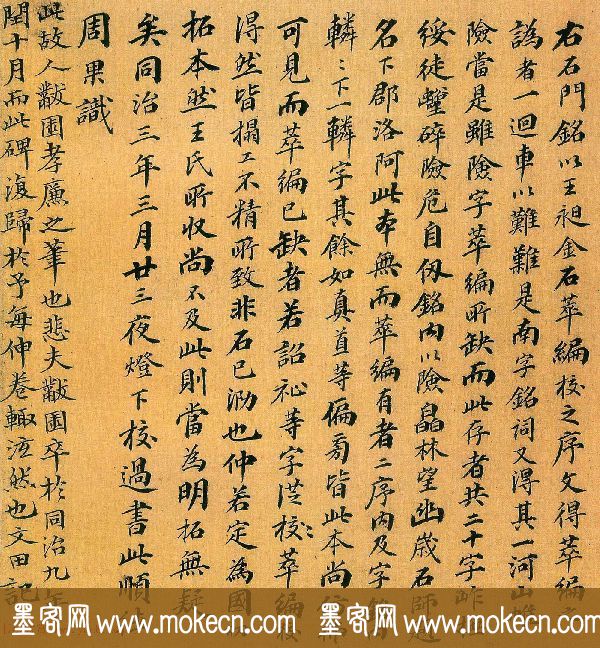 右石門銘以王昶金石萃編校之序文得萃編之
譌者一迴車以難難是南字銘詞又得其一河山雖
險當是雖險字萃編所缺而此存者共二十字岨
綏徒蹚碎險危自伋銘内以險晶林望幽歲石師
名下郡洛阿此本無而萃編有者二序内及字
轔〻下一轔字其餘如真首等偏旁皆此本尚
可見而萃編已缺者若詔祉等字從校〻萃編校
得然皆搨工不精所致非石已泐也仲若定為國
拓本然王氏所收尚不及此則當為明拓無疑
矣同治三年三月廿三夜燈下校過書此順
周果識
此故人黻園孝廉之筆也悲夫黻園卒於同治九年
閏十月而此碑復歸於予每伸卷輒泫然也文田記
墨客网 www.mokecn.com 墨客网 www.mokecn.com